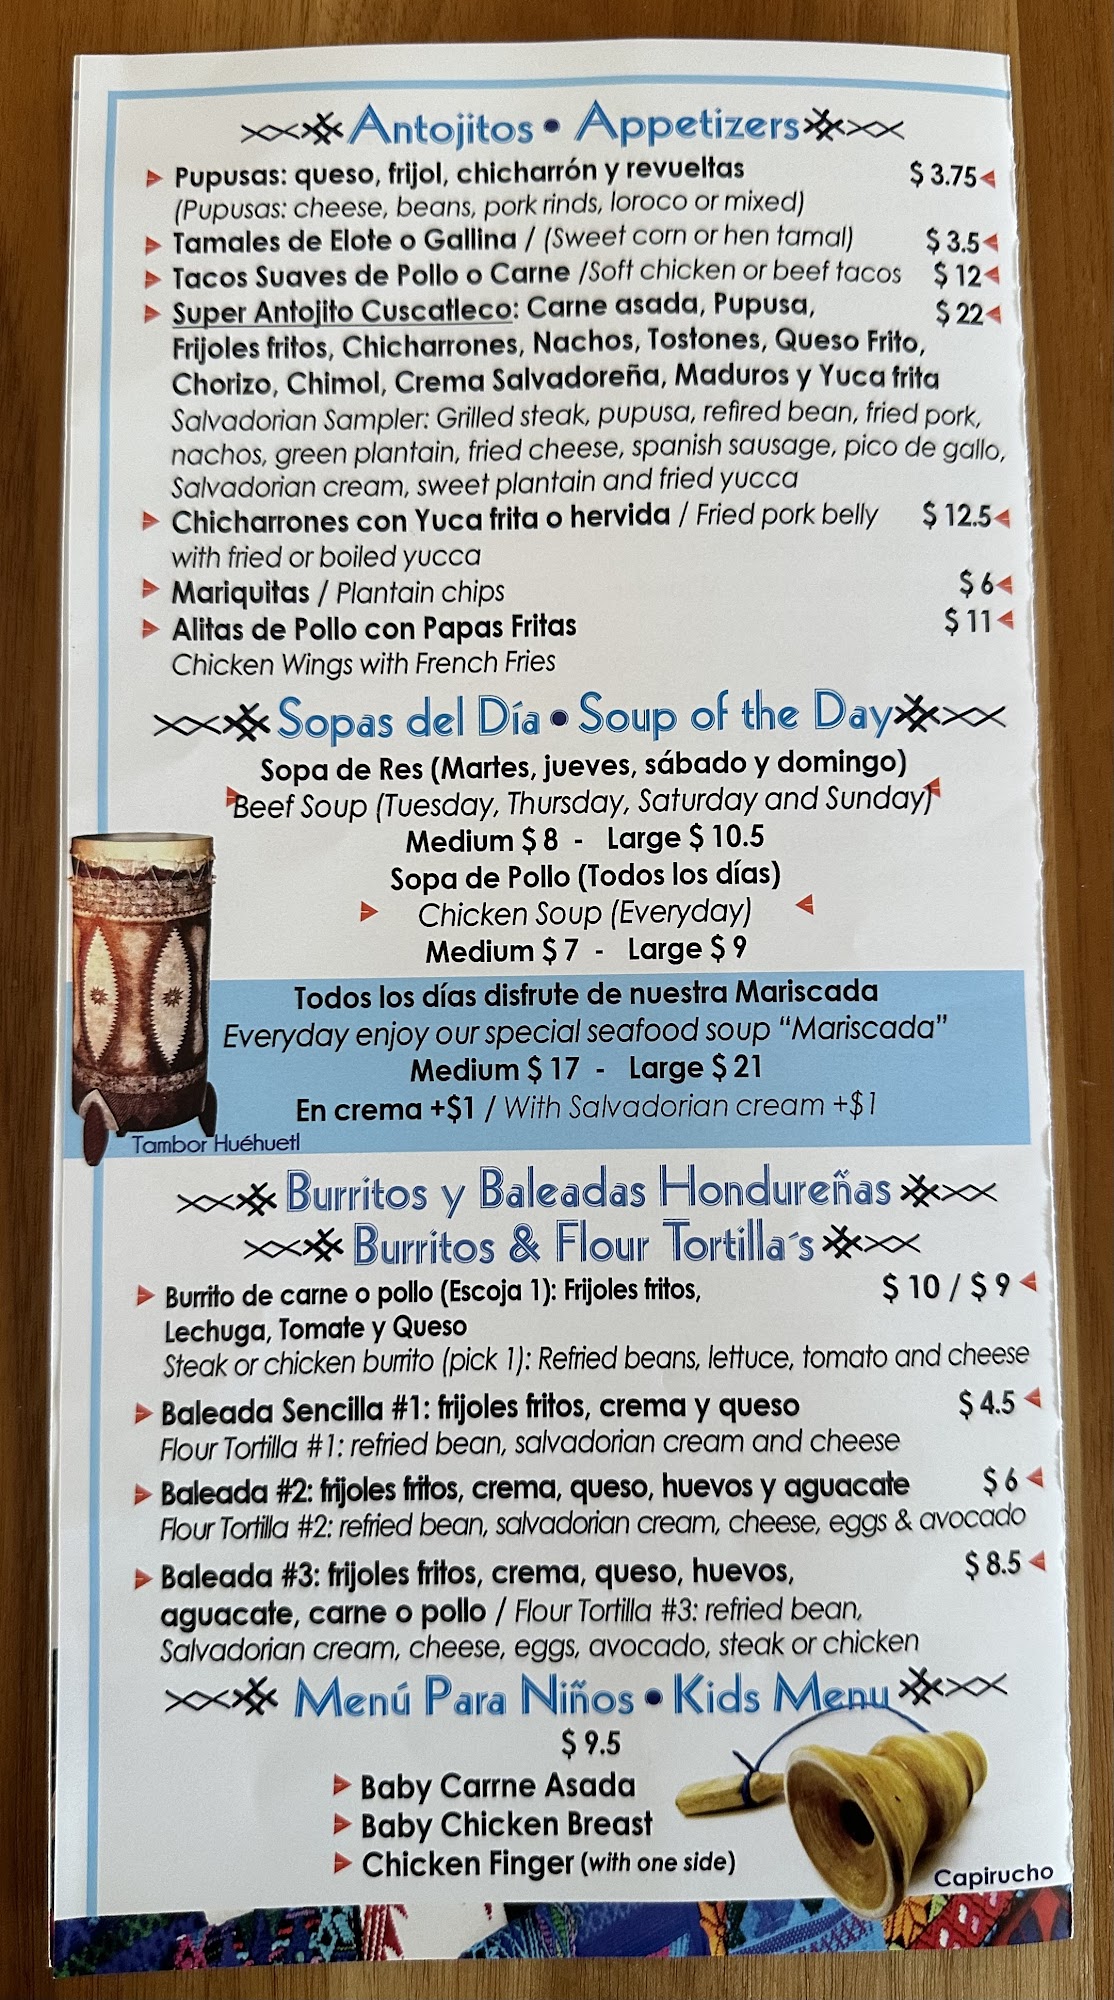 Antojitos • Appetizers
Pupusas: queso, frijol, chicharrón y revueltas $ 3.75
(Pupusas: cheese, beans, pork rinds, loroco or mixed)
Tamales de Elote o Gallina / (Sweet corn or hen tamal) $ 3.5
Tacos Suaves de Pollo o Carne /Soft chicken or beef tacos $ 12
Super Antojito Cuscatleco: Carne asada, Pupusa, $ 22
Frijoles fritos, Chicharrones, Nachos, Tostones, Queso Frito,
Chorizo, Chimol, Crema Salvadoreña, Maduros y Yuca frita
Salvadorian Sampler: Grilled steak, pupusa, refired bean, fried pork,
nachos, green plantain, fried cheese, spanish sausage, pico de gallo,
Salvadorian cream, sweet plantain and fried yucca
Chicharrones con Yuca frita o hervida / Fried pork belly $ 12.5
with fried or boiled yucca
Mariquitas / Plantain chips $ 6
Alitas de Pollo con Papas Fritas $ 11
Chicken Wings with French Fries
Sopas del Día • Soup of the Day
Sopa de Res (Martes, jueves, sábado y domingo)
Beef Soup (Tuesday, Thursday, Saturday and Sunday)
Medium $ 8 - Large $ 10.5
Sopa de Pollo (Todos los días)
Chicken Soup (Everyday)
Medium $ 7 - Large $ 9
Todos los días disfrute de nuestra Mariscada
Everyday enjoy our special seafood soup “Mariscada”
Medium $ 17 - Large $ 21
En crema +$1 / With Salvadorian cream +$1
Tambor Huéhuetl
Burritos y Baleadas Hondureñas
Burritos & Flour Tortilla´s
Burrito de carne o pollo (Escoja 1): Frijoles fritos, $ 10 / $ 9
Lechuga, Tomate y Queso
Steak or chicken burrito (pick 1): Refried beans, lettuce, tomato and cheese
Baleada Sencilla #1: frijoles fritos, crema y queso $ 4.5
Flour Tortilla #1: refried bean, salvadorian cream and cheese
Baleada #2: frijoles fritos, crema, queso, huevos y aguacate $ 6
Flour Tortilla #2: refried bean, salvadorian cream, cheese, eggs & avocado
Baleada #3: frijoles fritos, crema, queso, huevos, $ 8.5
aguacate, carne o pollo / Flour Tortilla #3: refried bean,
Salvadorian cream, cheese, eggs, avocado, steak or chicken
Menú Para Niños • Kids Menu
$ 9.5
Baby Carrne Asada
Baby Chicken Breast
Chicken Finger (with one side)
Capirucho